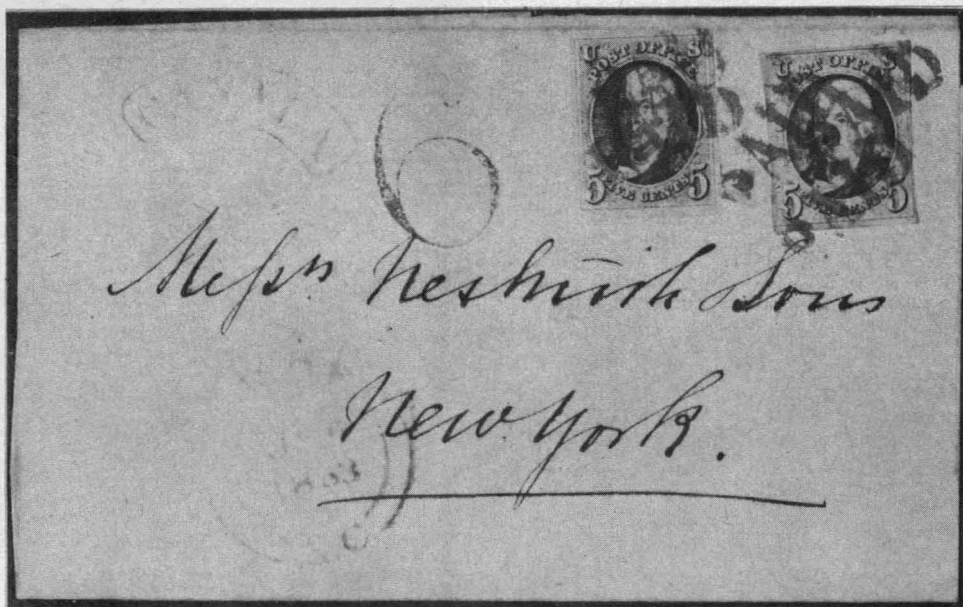 U S
POST OFFICE
FIVE CENTS
5 5
U S
POST OFFICE
FIVE CENTS
5 5
PAID
6
Messrs Nesmith Sons
New York.